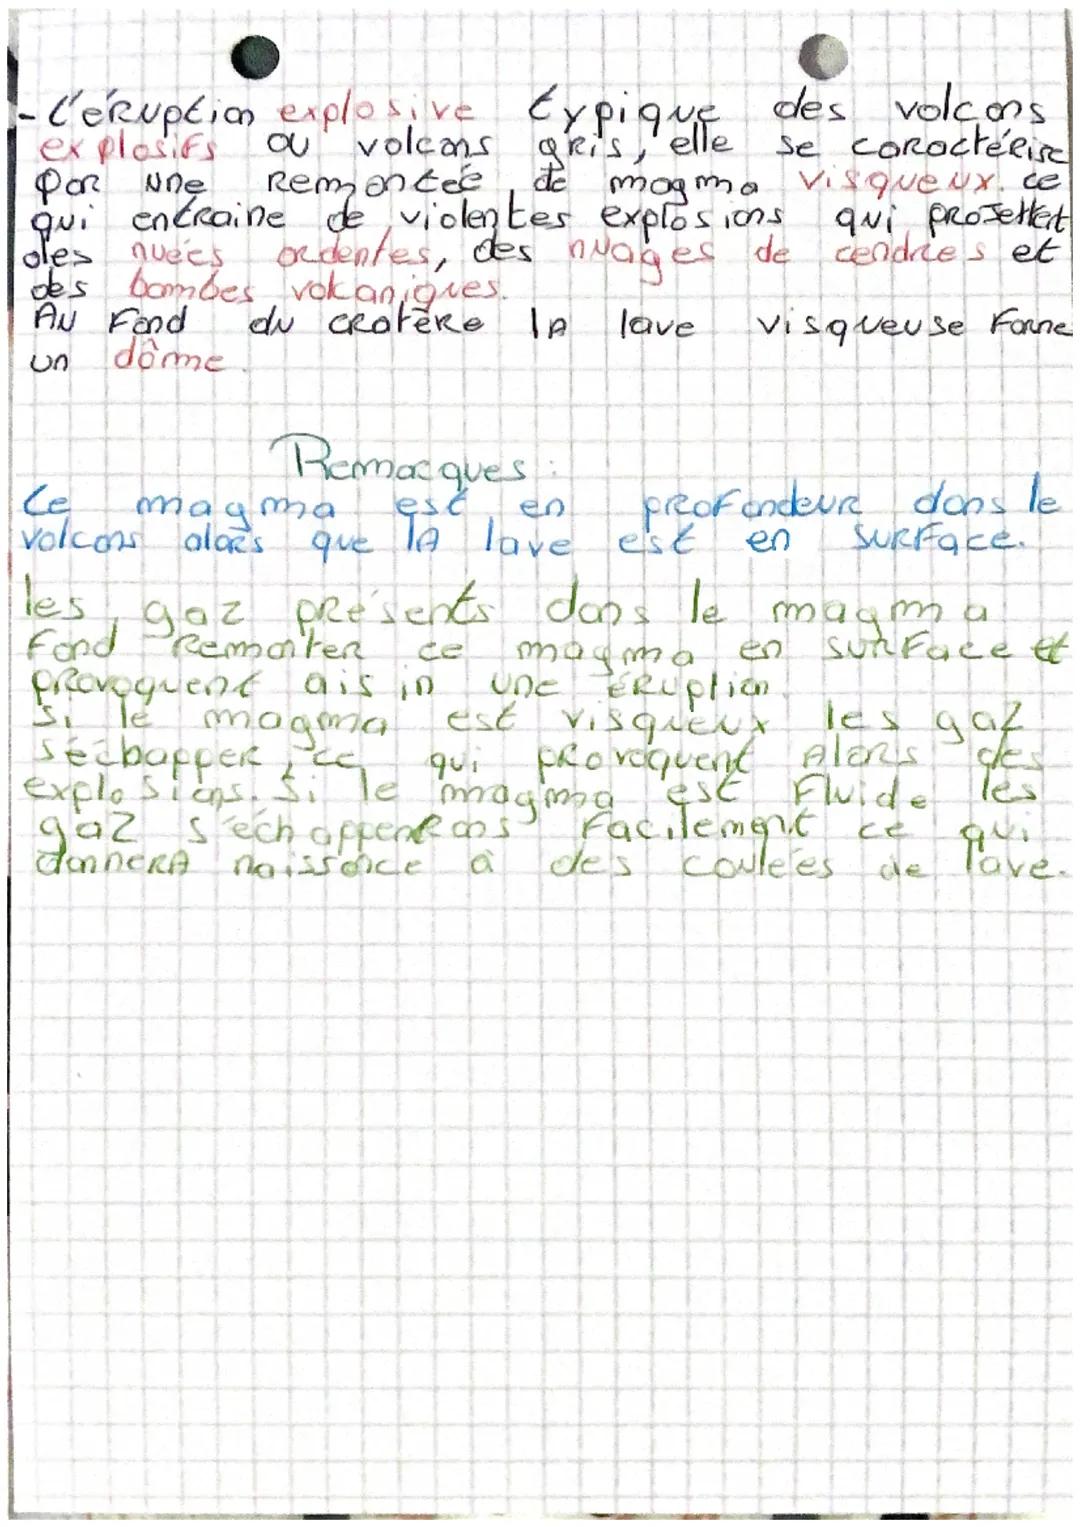 - L'éruption explosive typique des volcans
explosifs ou volcans gris, elle se caractérise
par une remontée de magma visqueux. ce
qui entraine de violentes explosions qui projettent
des nuées ardentes, des nuages de cendres et
des bombes volcaniques.
Au fond du cratère la lave visqueuse forme
un dôme.
Remarques :
Le magma est en profondeur dans le
volcans alors que la lave est en surface.
les gaz présents dans le magma
fond remonter ce magma en surface et
provoquent aisin une éruption.
Si le magma est visqueux les gaz
s'échapper, ce qui provoquent alors des
explosions. Si le magma est fluide les
gaz s'échapperons facilement ce qui
donnera naissance à des coulées de lave.